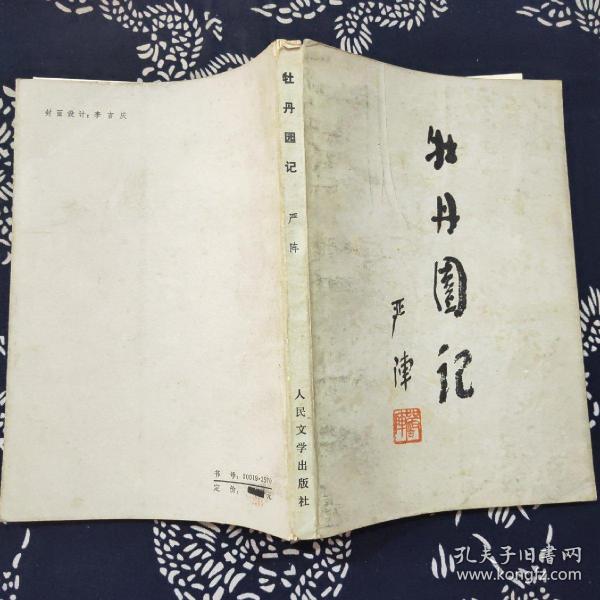 封面设计：李吉庆
牡丹园记
严阵
人民文学出版社
书号：10019·2970
定价：元
牡丹園记
严陣
孔夫子旧书网
www.kongfz.com